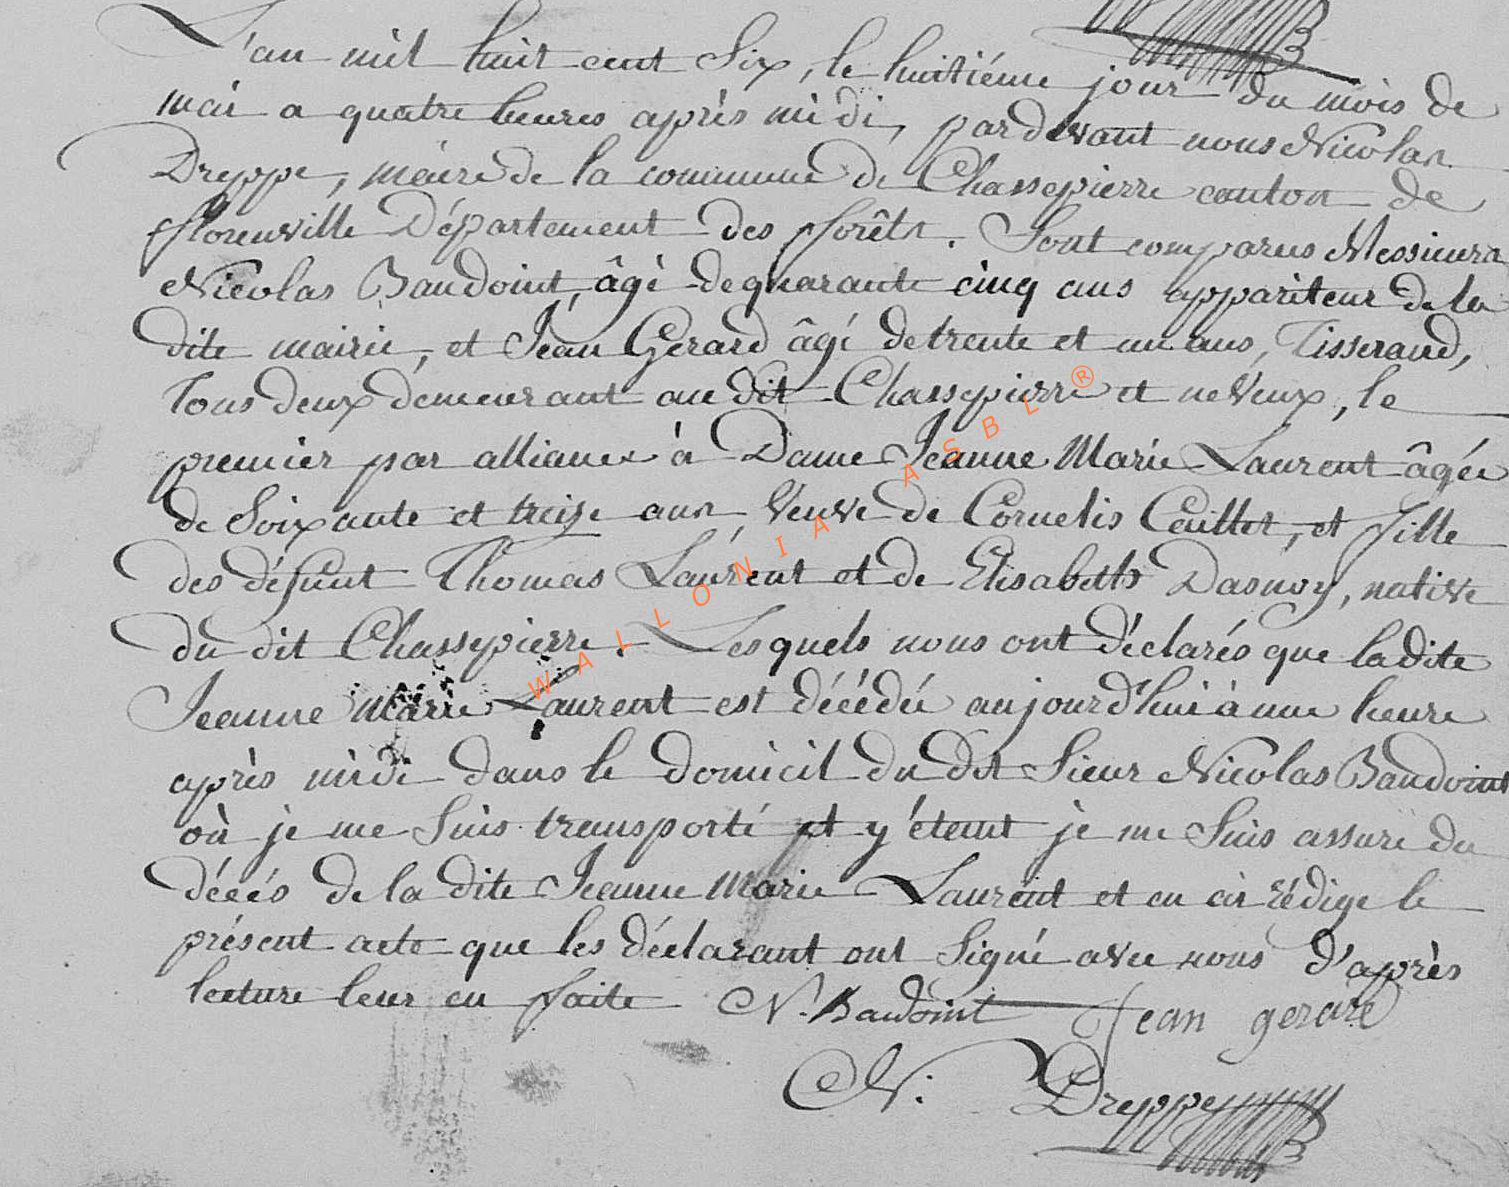 L'an mil huit cent Six, le huitiéme jour du mois de
mai a quatre heures après midi, pardevant nous Nicolas
Dreppe, maire de la commune de Chassepierre canton de
florenville Département des forêts. Sont comparus Messieurs
Nicolas Baudoint, âgé de quarante cinq ans appariteur de la
dite mairie, et Jean Gerard âgé de trente et un ans, Tisserand,
Tous deux demeurant au dit Chassepierre et neveux, le
premier par alliance à Dame Jeanne Marie Laurent âgée
de Soixante et treize ans, Veuve de Cornelis Caillet, et fille
des défunt Thomas Laurent et de Elisabeth Dasnoy, native
du dit Chassepierre. Lesquels nous ont déclarés que la dite
Jeanne Marie Laurent est décédée aujourd'hui à une heure
après midi dans le domicil du dit Sieur Nicolas Baudoint
où je me Suis transporté et y étant je me Suis assuré du
décés de la dite Jeanne Marie Laurent et en ai rédige le
présent acte que les déclarant ont Signé avec nous d'après
lecture leur en faite N. Baudoint Jean gerard
N. Dreppe
WALLONIA ASBL®